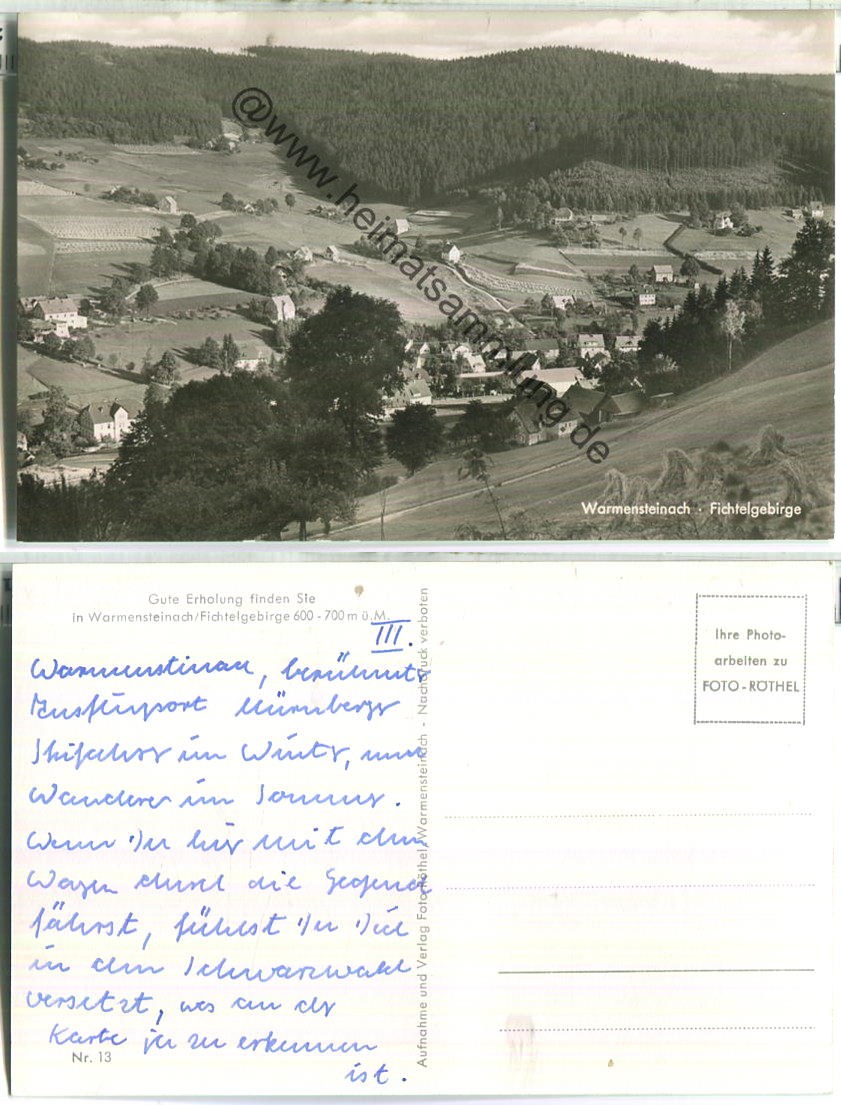 @www.heimatsammlung.de
Warmensteinach · Fichtelgebirge
Gute Erholung finden Sie
in Warmensteinach/Fichtelgebirge 600 - 700 m ü. M.
III.
Warmensteinach, berühmter
Ausflugsort Nürnberger
Skifahrer im Winter, und
Wanderer im Sommer.
Wenn Du hier mit dem
Wagen durch die Gegend
fährst, fühlst Du Dich
in den Schwarzwald
versetzt, was an der
Karte ja zu erkennen
ist.
Nr. 13
Aufnahme und Verlag Foto-Röthel, Warmensteinach - Nachdruck verboten
Ihre Photo-
arbeiten zu
FOTO-RÖTHEL